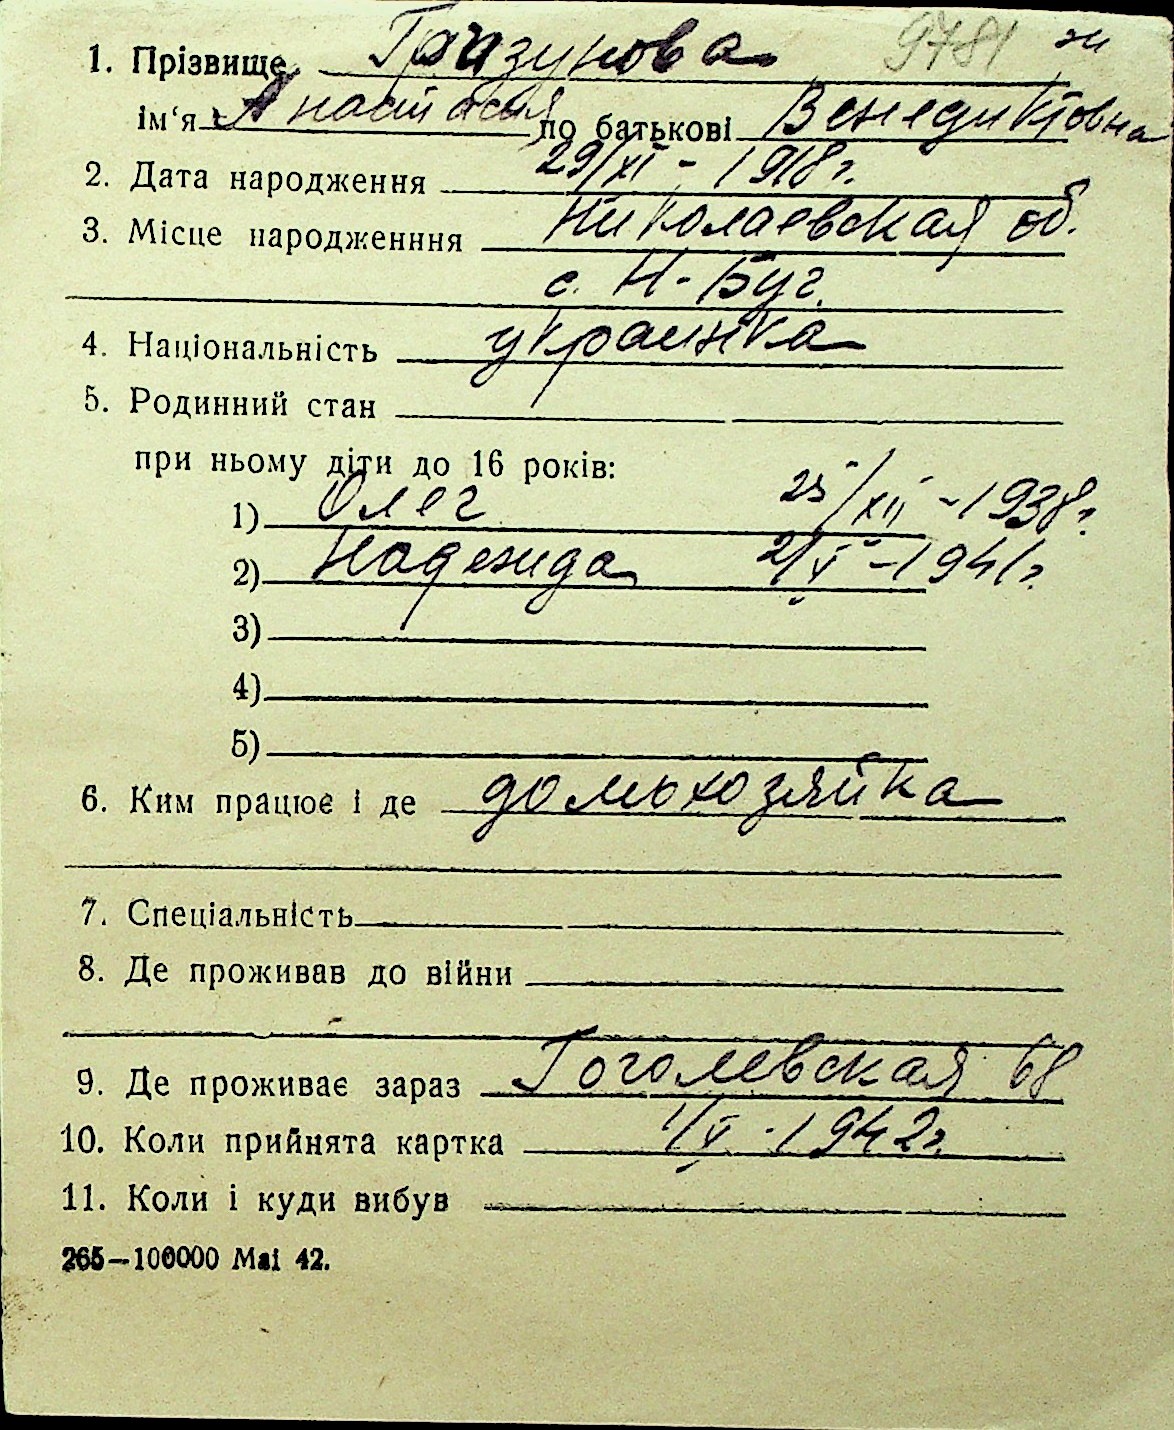 1. Прізвище Гризунова 9781 эи
ім‘я Анастасия по батькові Венедиктовна
2. Дата народження 29/XI - 1918 г.
3. Місце народженння Николаевская об.
с. Н-Буг.
4. Національність украинка
5. Родинний стан
при ньому діти до 16 років:
1) Олег 25/XII - 1938 г.
2) Надежида 2/V - 1941 г.
3)
4)
5)
6. Ким працює і де домохозяйка
7. Спеціальність
8. Де проживав до війни
9. Де проживає зараз Гоголевская 68
10. Коли прийнята картка 1/V - 1942 г.
11. Коли і куди вибув
265—100000 Mai 42.